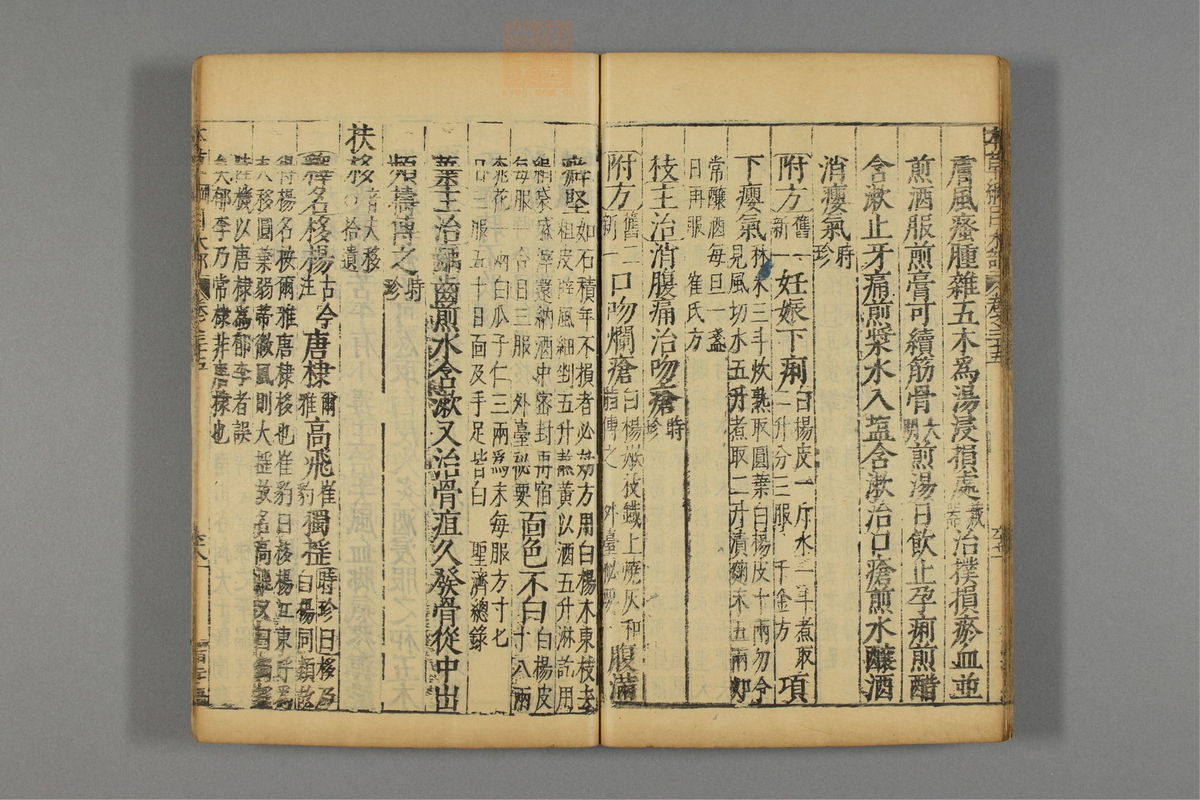 本草綱目木部 卷之三十五
膚風瘙腫雜五木爲湯浸損處藏器治撲損瘀血並
煎酒服煎膏可續筋骨大明煎湯日飲止孕痢煎醋
含漱止牙痛煎漿水入鹽含漱治口瘡煎水釀酒
消癭氣時珍
附方舊一新一妊娠下痢白楊皮一斤水一斗煮取二升分三服 千金方項
下癭氣秫米三斗炊熟取圓葉白楊皮十兩勿令見風切水五升煮取二升漬麴末五兩如
常釀酒每旦一盞日再服 崔氏方
枝主治消腹痛治吻瘡時珍
附方舊二新一口吻爛瘡白楊嫩枝鐵上燒灰和脂傅之 外臺秘要腹滿
癖堅如石積年不損者必効方用白楊木東枝去粗皮辟風細剉五升熬黃以酒五升淋訖用
絹袋盛滓還納酒中密封再宿每服一合日三服 外臺秘要面色不白白楊皮十八兩
桃花一兩白瓜子仁三兩爲末每服方寸匕日三服五十日面及手足皆白 聖濟總錄
葉主治齲齒煎水含漱又治骨疽久發骨從中出
頻擣傅之時珍
扶栘音夫移〇拾遺
釋名栘楊古今注唐棣爾雅高飛崔豹獨搖時珍曰栘乃白楊同類故
得楊名按爾雅唐棣栘也崔豹曰栘楊江東呼爲
夫栘圓葉弱蔕微風則大搖故名高飛又曰獨搖
陸機以唐棣爲郁李者誤
矣郁李乃常棣非唐棣也